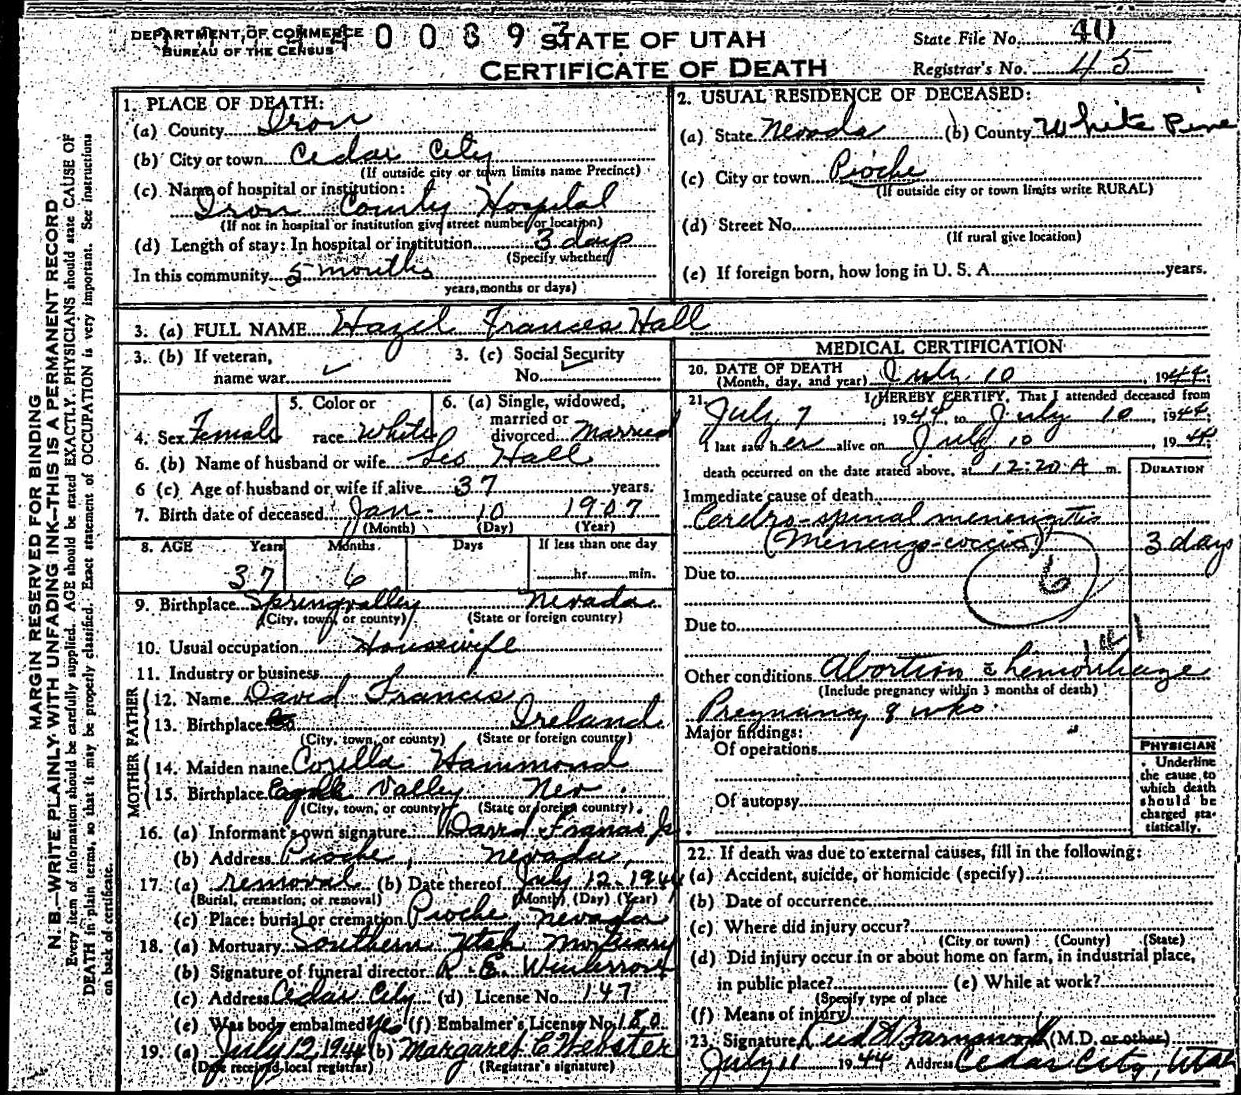 DEPARTMENT OF COMMERCE
BUREAU OF THE CENSUS
STATE OF UTAH
CERTIFICATE OF DEATH
State File No. 40
Registrar's No. 45
MARGIN RESERVED FOR BINDING
N. B.—WRITE PLAINLY WITH UNFADING INK—THIS IS A PERMANENT RECORD
Every item of information should be carefully supplied. AGE should be stated EXACTLY. PHYSICIANS should state CAUSE OF
DEATH in plain terms, so that it may be properly classified. Exact statement of OCCUPATION is very important. See instructions
on back of certificate.
1. PLACE OF DEATH:
(a) County Iron
(b) City or town Cedar City
(If outside city or town limits name Precinct)
(c) Name of hospital or institution:
Iron County Hospital
(If not in hospital or institution give street number or location)
(d) Length of stay: In hospital or institution 3 days
(Specify whether
In this community 5 months
years, months or days)
2. USUAL RESIDENCE OF DECEASED:
(a) State Nevada (b) County White Pine
(c) City or town Pioche
(If outside city or town limits write RURAL)
(d) Street No.
(If rural give location)
(e) If foreign born, how long in U. S. A. years.
3. (a) FULL NAME Hazel Frances Hall
3. (b) If veteran, name war
3. (c) Social Security No.
4. Sex Female
5. Color or race White
6. (a) Single, widowed, married or divorced Married
6. (b) Name of husband or wife Les Hall
6 (c) Age of husband or wife if alive 37 years.
7. Birth date of deceased Jan. 10 1907
(Month) (Day) (Year)
8. AGE Years Months Days If less than one day
37 6 hr. min.
9. Birthplace Springvalley Nevada
(City, town, or county) (State or foreign country)
10. Usual occupation Housewife
11. Industry or business
FATHER
12. Name David Francis
13. Birthplace Ireland
(City, town, or county) (State or foreign country)
MOTHER
14. Maiden name Cozella Hammond
15. Birthplace Eagle Valley Nev.
(City, town, or county) (State or foreign country)
16. (a) Informant's own signature David Francis Jr.
(b) Address Pioche, Nevada,
17. (a) removal (b) Date thereof July 12, 1944
(Burial, cremation, or removal) (Month) (Day) (Year)
(c) Place: burial or cremation Pioche Nevada
18. (a) Mortuary Southern Utah Mortuary
(b) Signature of funeral director R. E.
(c) Address Cedar City (d) License No. 147
(e) Was body embalmed Yes (f) Embalmer's License No. 180
19. (a) July 12, 1944 (b) Margaret C Webster
(Date received local registrar) (Registrar's signature)
MEDICAL CERTIFICATION
20. DATE OF DEATH
(Month, day, and year) July 10, 1944
21. I HEREBY CERTIFY, That I attended deceased from
July 7, 1944, to July 10, 1944
I last saw her alive on July 10 1944
death occurred on the date stated above, at 12:20 A m.
DURATION
Immediate cause of death
Cerebro-spinal meningitis
(Meningo-coccus) 3 days
Due to
6
Due to
Other conditions Abortion c̄ hemorrhage
(Include pregnancy within 3 months of death)
Pregnancy 8 wks.
Major findings:
Of operations
Of autopsy
PHYSICIAN
Underline
the cause to
which death
should be
charged sta-
tistically.
22. If death was due to external causes, fill in the following:
(a) Accident, suicide, or homicide (specify)
(b) Date of occurrence
(c) Where did injury occur?
(City or town) (County) (State)
(d) Did injury occur in or about home on farm, in industrial place,
in public place? (e) While at work?
(Specify type of place
(f) Means of injury)
23. Signature Farnsworth (M.D. or other)
July 11 1944 Address Cedar City, Utah